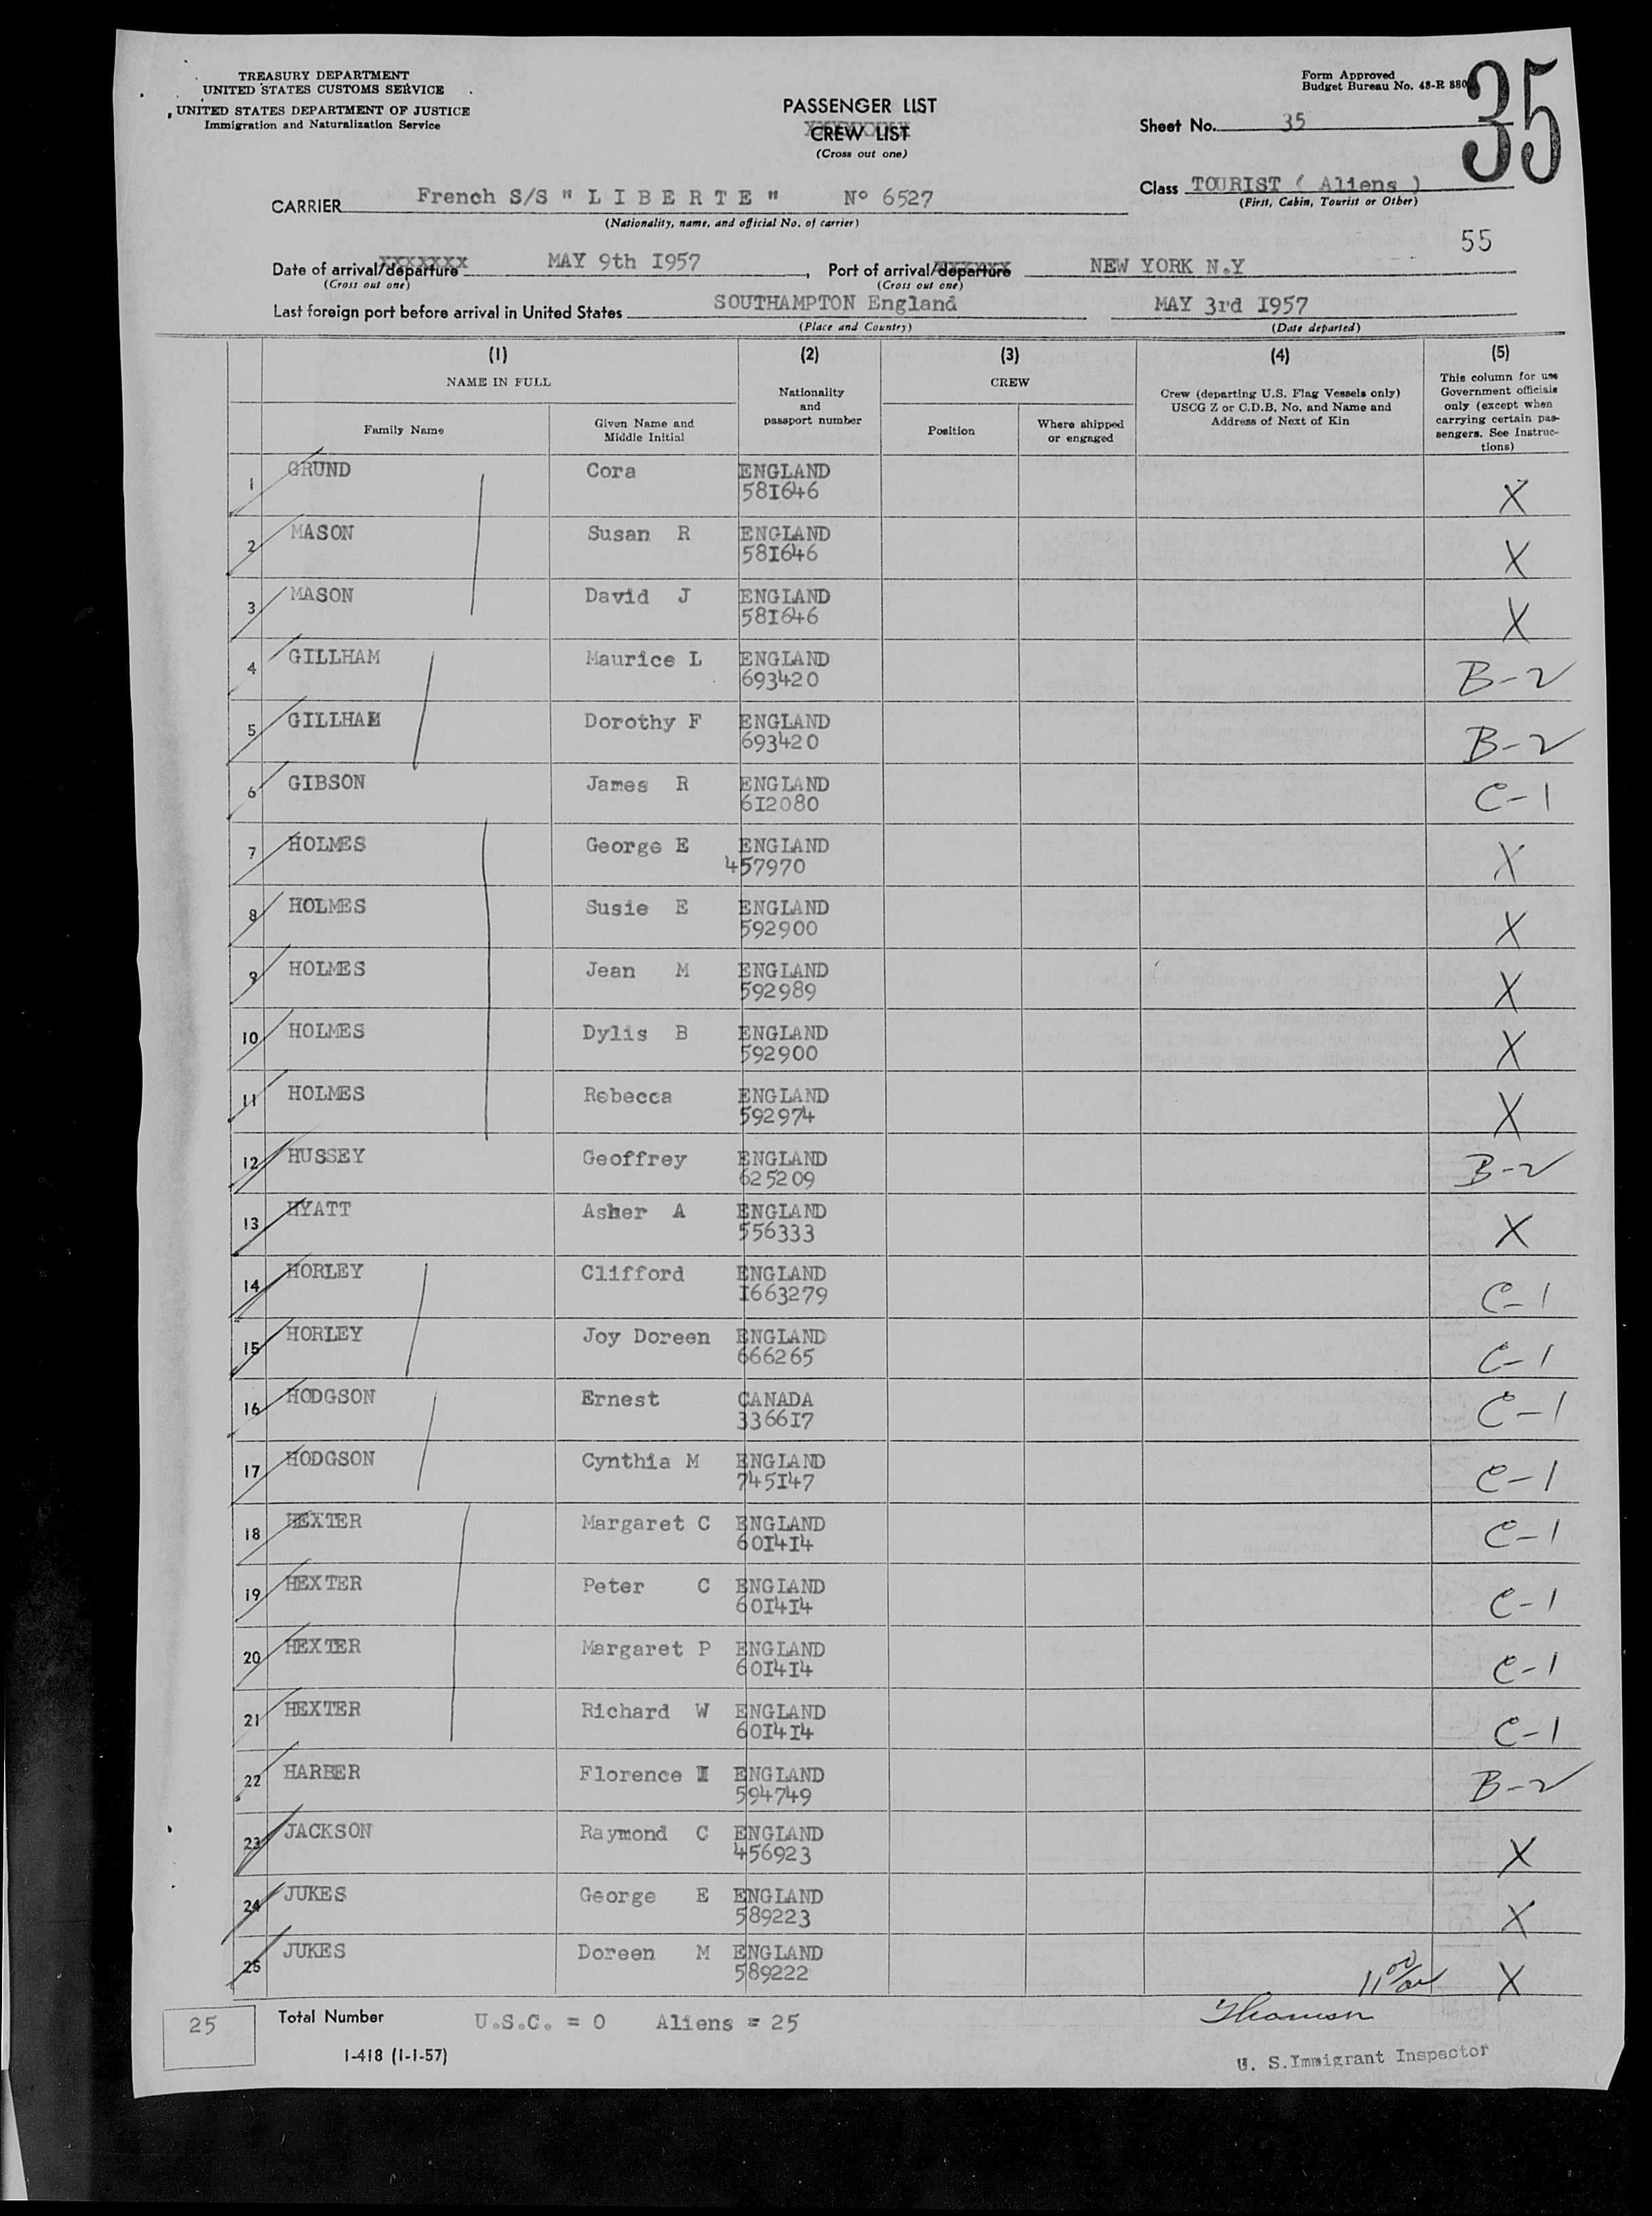 TREASURY DEPARTMENT
UNITED STATES CUSTOMS SERVICE
UNITED STATES DEPARTMENT OF JUSTICE
Immigration and Naturalization Service
PASSENGER LIST
CREW LIST
(Cross out one)
Form Approved
Budget Bureau No. 43-R 880
35
Sheet No. 35
Class TOURIST ( Aliens )
(First, Cabin, Tourist or Other)
CARRIER French S/S " L I B E R T E " N° 6527
(Nationality, name, and official No. of carrier)
55
Date of arrival/departure MAY 9th I957, Port of arrival/departure NEW YORK N.Y
(Cross out one) (Cross out one)
Last foreign port before arrival in United States SOUTHAMPTON England MAY 3rd I957
(Place and Country) (Date departed)
(1) (2) (3) (4) (5)
NAME IN FULL
Family Name
Given Name and Middle Initial
Nationality and passport number
CREW
Position
Where shipped or engaged
Crew (departing U.S. Flag Vessels only) USCG Z or C.D.B. No. and Name and Address of Next of Kin
This column for use Government officials only (except when carrying certain passengers. See Instructions)
1 GRUND Cora ENGLAND 58I646 X
2 MASON Susan R ENGLAND 58I646 X
3 MASON David J ENGLAND 58I646 X
4 GILLHAM Maurice L ENGLAND 693420 B-2
5 GILLHAM Dorothy F ENGLAND 693420 B-2
6 GIBSON James R ENGLAND 6I2080 C-1
7 HOLMES George E ENGLAND 457970 X
8 HOLMES Susie E ENGLAND 592900 X
9 HOLMES Jean M ENGLAND 592989 X
10 HOLMES Dylis B ENGLAND 592900 X
11 HOLMES Rebecca ENGLAND 592974 X
12 HUSSEY Geoffrey ENGLAND 625209 B-2
13 HYATT Asher A ENGLAND 556333 X
14 HORLEY Clifford ENGLAND I663279 C-1
15 HORLEY Joy Doreen ENGLAND 666265 C-1
16 HODGSON Ernest CANADA 3366I7 C-1
17 HODGSON Cynthia M ENGLAND 745I47 C-1
18 HEXTER Margaret C ENGLAND 60I4I4 C-1
19 HEXTER Peter C ENGLAND 60I4I4 C-1
20 HEXTER Margaret P ENGLAND 60I4I4 C-1
21 HEXTER Richard W ENGLAND 60I4I4 C-1
22 HARBER Florence ENGLAND 594749 B-2
23 JACKSON Raymond C ENGLAND 456923 X
24 JUKES George E ENGLAND 589223 X
25 JUKES Doreen M ENGLAND 589222 X
11 00
25 Total Number U.S.C. = 0 Aliens = 25
I-418 (1-1-57)
U. S.Immigrant Inspector